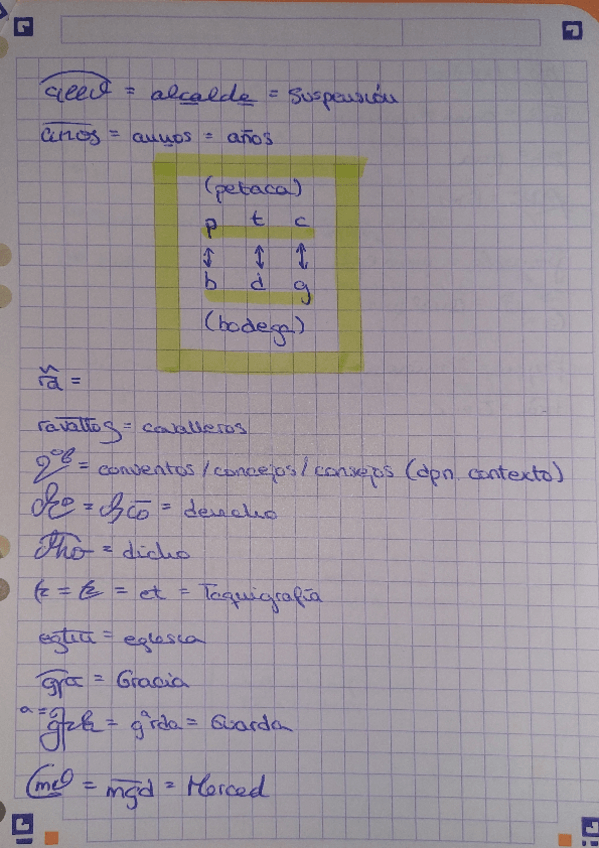 = alcalde = suspensión
anos = annos = años
(petaca)
p t c
b d g
(bodega)
=
= cavalleros
= conventos / concejos / consejos (dpn. contexto)
= = derecho
dho = dicho
= = et = Taquigrafía
= eglesia
gra = Gracia
a =
= gªrda = Guarda
= mgd = Merced